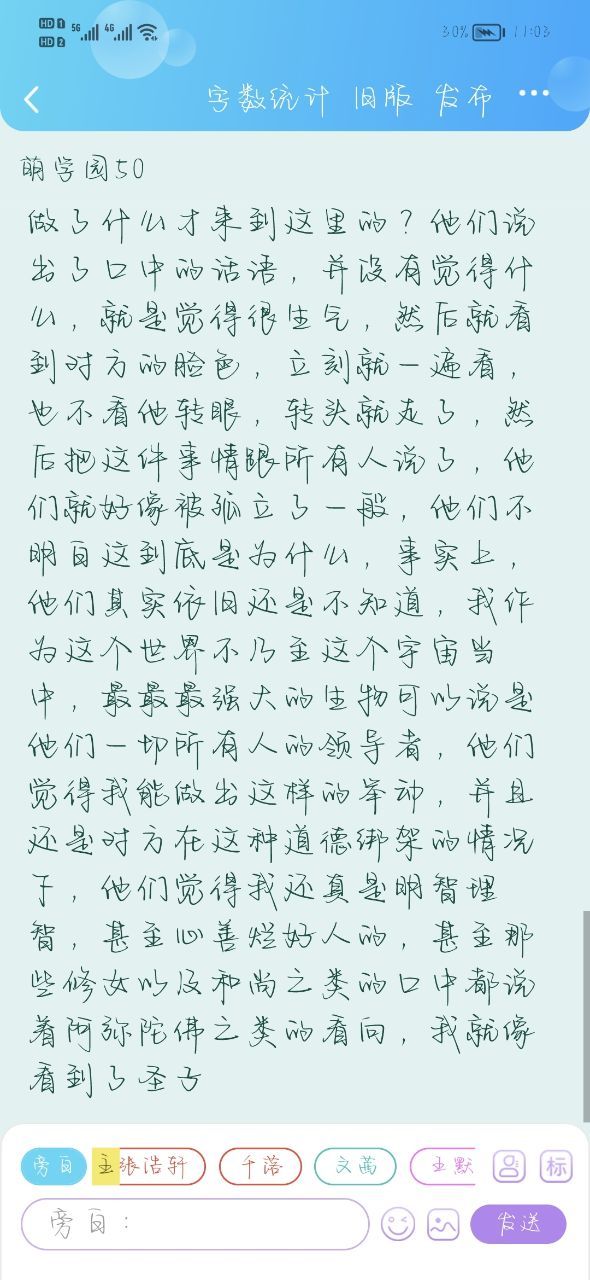 HD 1 5G 4G 30% 11:03
HD 2
字数统计 旧版 发布
萌学园50
做了什么才来到这里的？他们说
出了口中的话语，并没有觉得什
么，就是觉得很生气，然后就看
到对方的脸色，立刻就一遍看，
也不看他转眼，转头就走了，然
后把这件事情跟所有人说了，他
们就好像被孤立了一般，他们不
明白这到底是为什么，事实上，
他们其实依旧还是不知道，我作
为这个世界不乃至这个宇宙当
中，最最最强大的生物可以说是
他们一切所有人的领导者，他们
觉得我能做出这样的举动，并且
还是对方在这种道德绑架的情况
下，他们觉得我还真是明智理
智，甚至心善烂好人的，甚至那
些修女以及和尚之类的口中都说
着阿弥陀佛之类的看向，我就像
看到了圣子
旁白 主 张浩轩 千落 文茜 王默 标
旁白： 发送